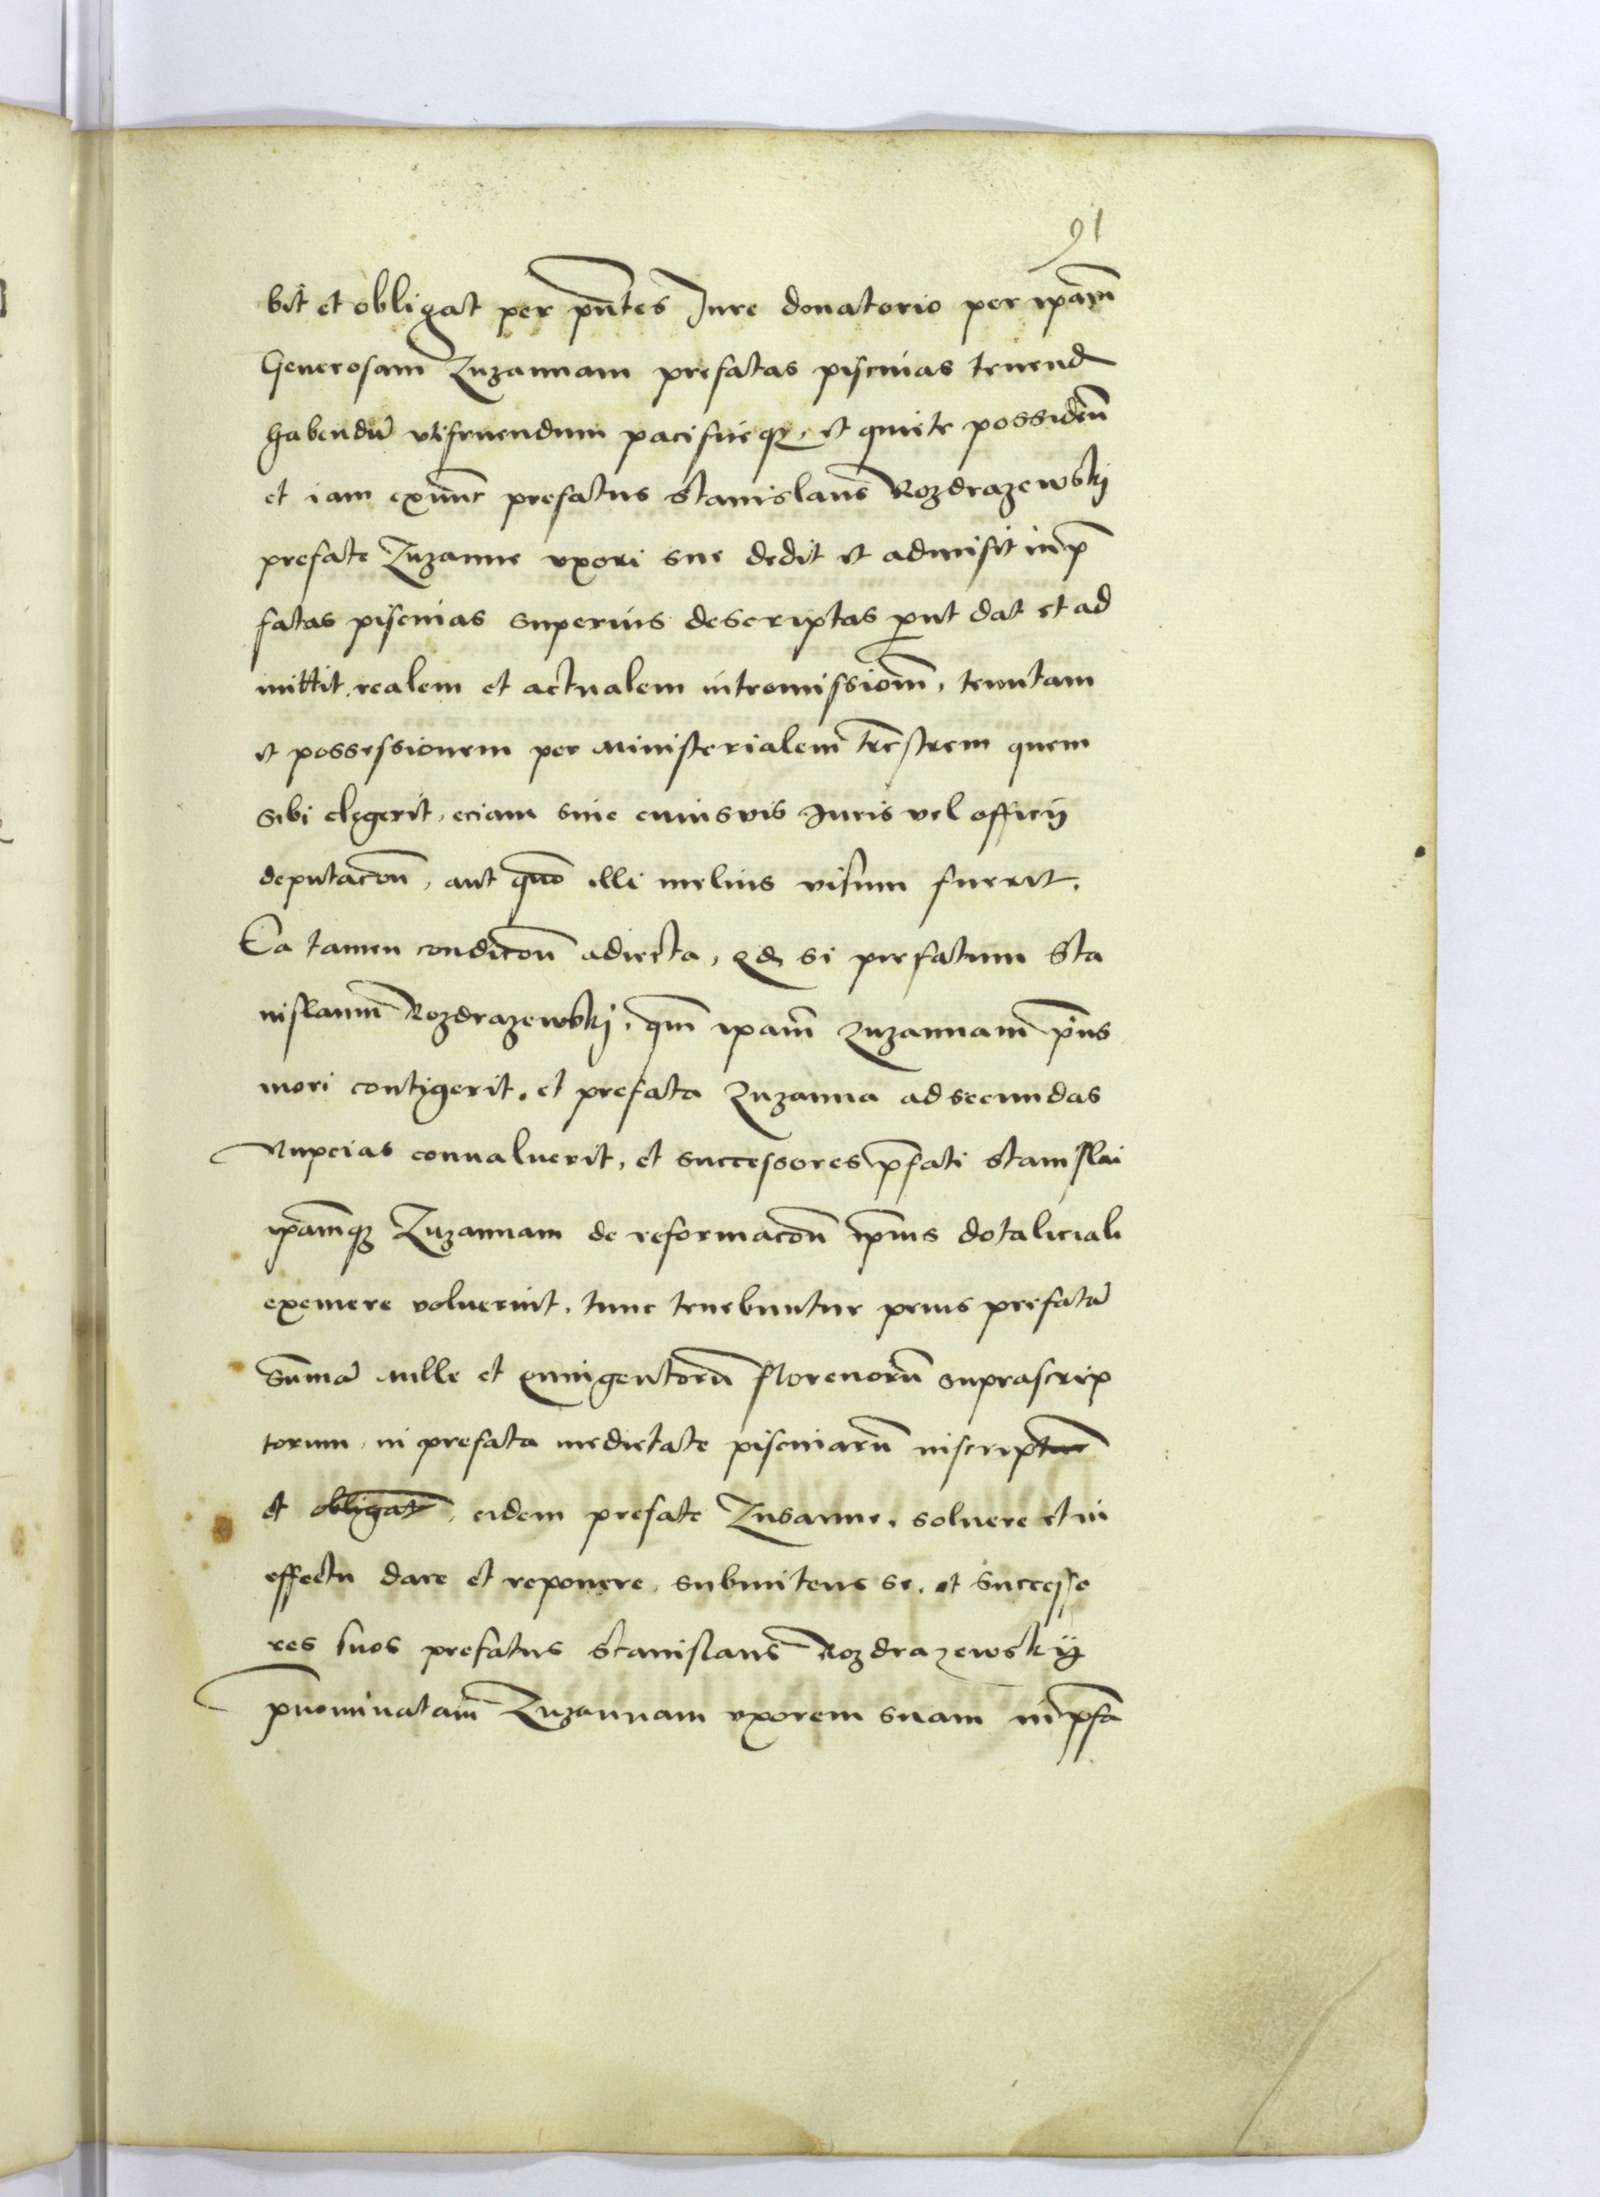 91
bit et obligat per pñtes Jure donatorio per ip̃am
Generosam Zuzannam prefatas piscinas tenend
habendũ vtifruendum pacificeq; et quiete possideñ
et iam exnunc prefatus Stanislaus Rozdrazewskj
prefate Zuzanne vxori sue dedit et admisit in p̃
fatas piscinas superius descriptas put dat et ad
mittit realem et actualem intromissiom̃, tenutam
et possessionem per Ministerialem trẽstrem quem
sibi elegerit, eciam sine cuiusvis Juris vel officij
deputacoñ, aut quo illi melius visum fuerit.
Ea tamen condicoñ adiecta, qd si prefatum Sta
nislaum Rozdrazewskj, qm̃ ip̃am Zuzannam p̃us
mori contigerit, et prefata Zuzanna ad secundas
Nupcias conualuerit, et successores p̃fati Stanislai
ip̃amq; Zuzannam de reformacoñ ip̃ius dotaliciali
eximere voluerint, tunc tenebuntur prius prefatã
Sum̃ã Mille et quingentorũ florenorũ suprascrip
torum, in prefata medietate piscinarũ inscriptaʒ
et obligat̃, eidem prefate Zusanne, soluere et in
effectu dare et reponere, submitens se, et Successo
res suos prefatus Stanislaus Rozdrazewskij
p̃nominatam̃ Zuzannam vxorem suam in p̃fa